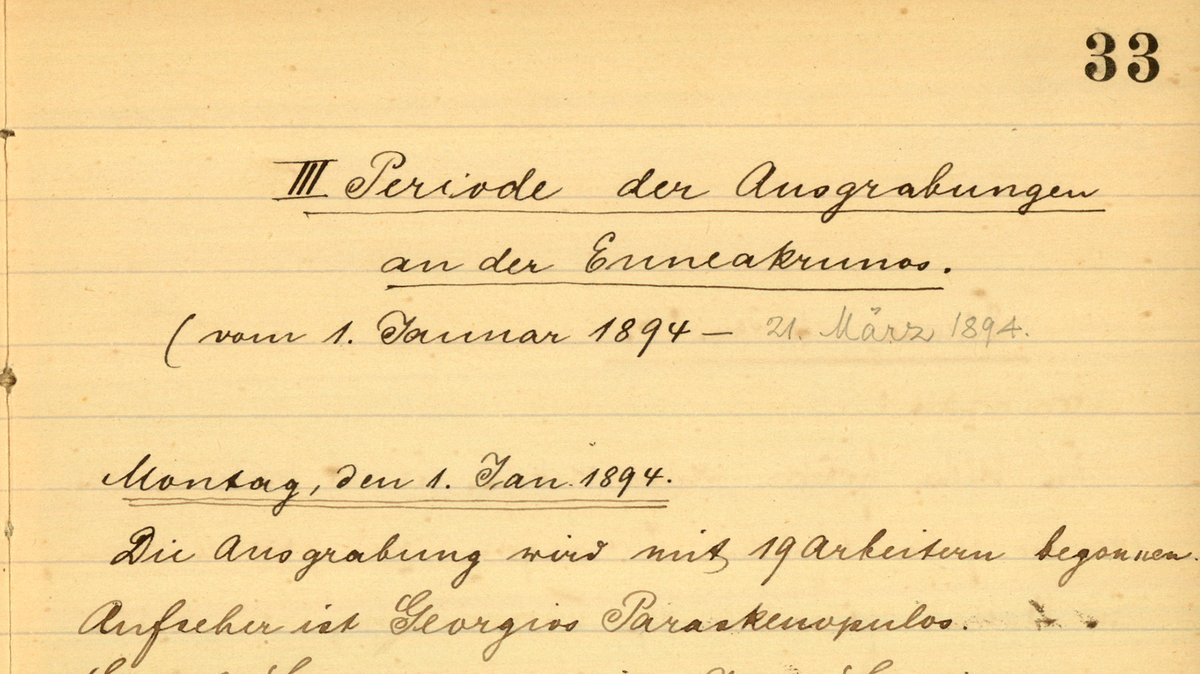 33
III Periode der Ausgrabungen
an der Enneakrunos.
(vom 1. Januar 1894 — 21. März 1894.
Montag, den 1. Jan. 1894.
Die Ausgrabung wird mit 19 Arbeitern begonnen.
Aufseher ist Georgios Paraskenopulos.